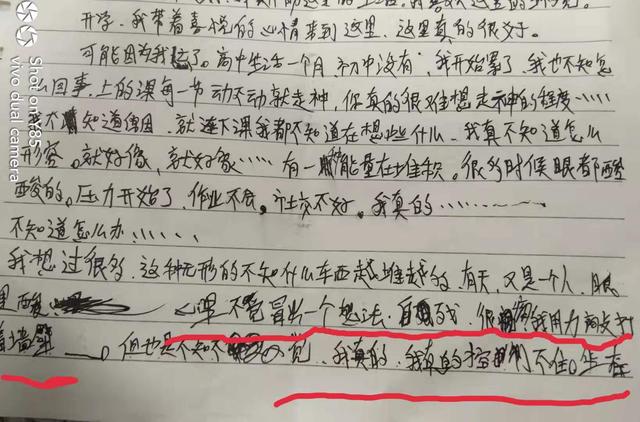 开学，我带着喜悦的心情来到这里，这里真的很好。
可能因为我 了。高中生活一个月，初中没有，我开始累了，我也不知怎
么回事，上的课每一节动不动就走神，你真的很难想走神的程度……
我不 知道缘因，就连下课我都不知道在想些什么，我真不知道怎么
形容。就好像，就好像……有一 能量在堆积。很多时候眼都
酸的。压力开始了，作业不会，社交不好，我真的……
不知道怎么办……
我想过很多，这种无形的不知什么东西越堆越的，有天，又是一个人，眼
里酸， 心里不觉冒出一个想法，自 残，很 我用力
着墙壁 。但也是不知不 觉，我真的，我真的控制不住。坐在
Shot on x9
vivo dual camera